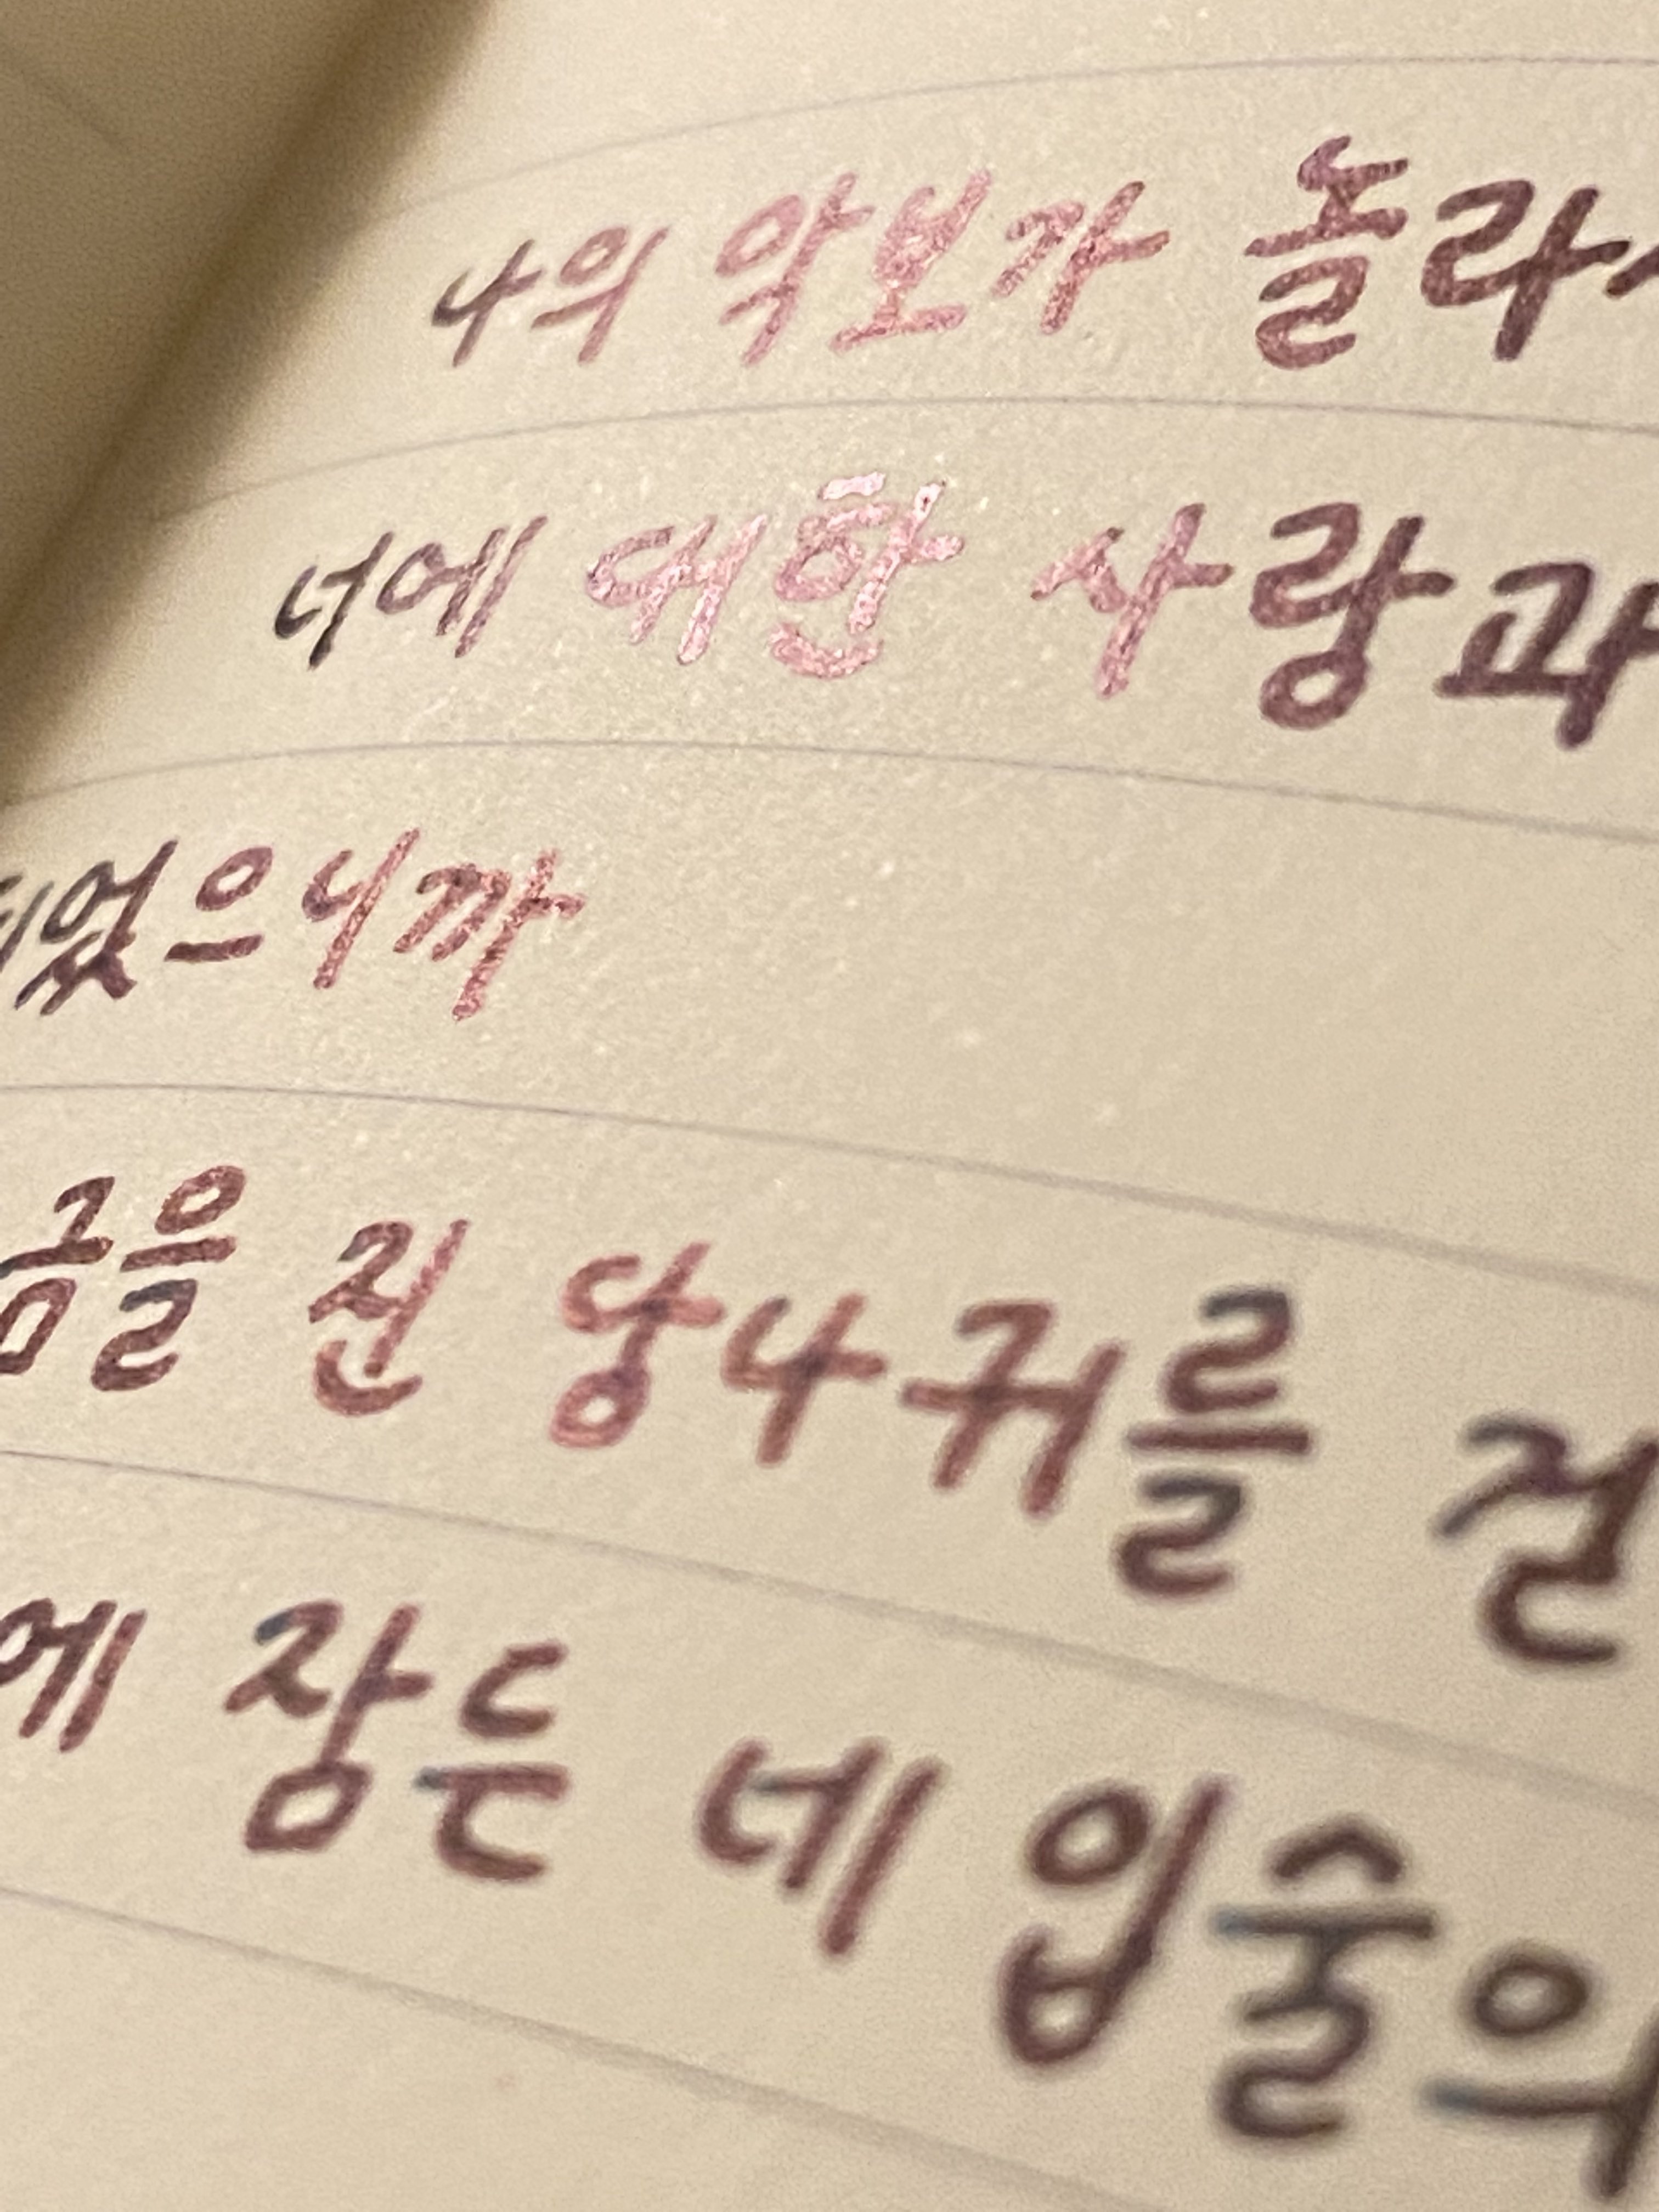 나의 악보가 놀라
너에 대한 사랑과
었으니까
금을 진 당나귀를 걷
에 잠든 네 입술의